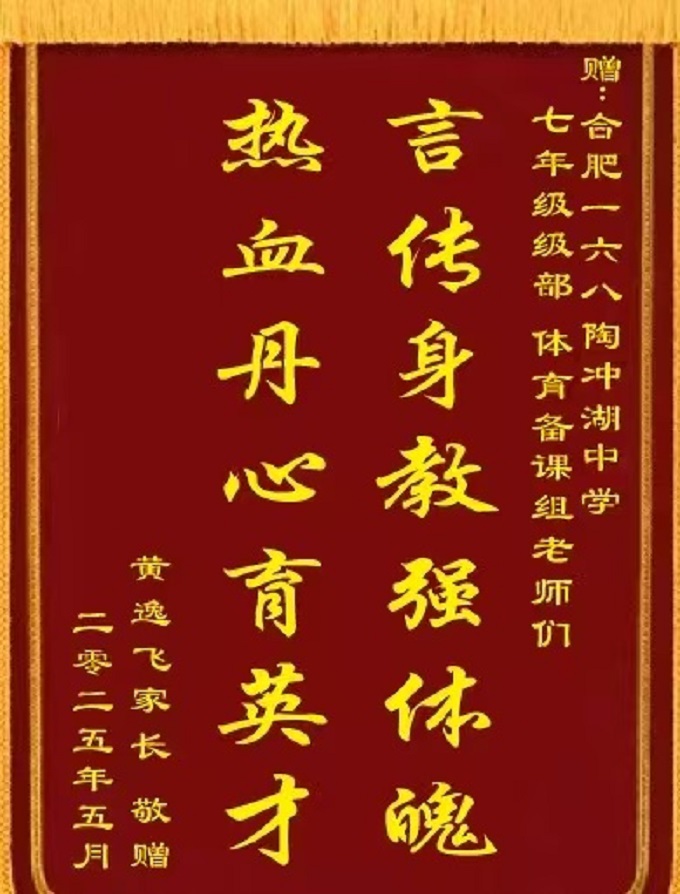 赠：合肥一六八陶冲湖中学
七年级级部 体育备课组老师们
言传身教强体魄
热血丹心育英才
黄逸飞家长 敬赠
二零二五年五月